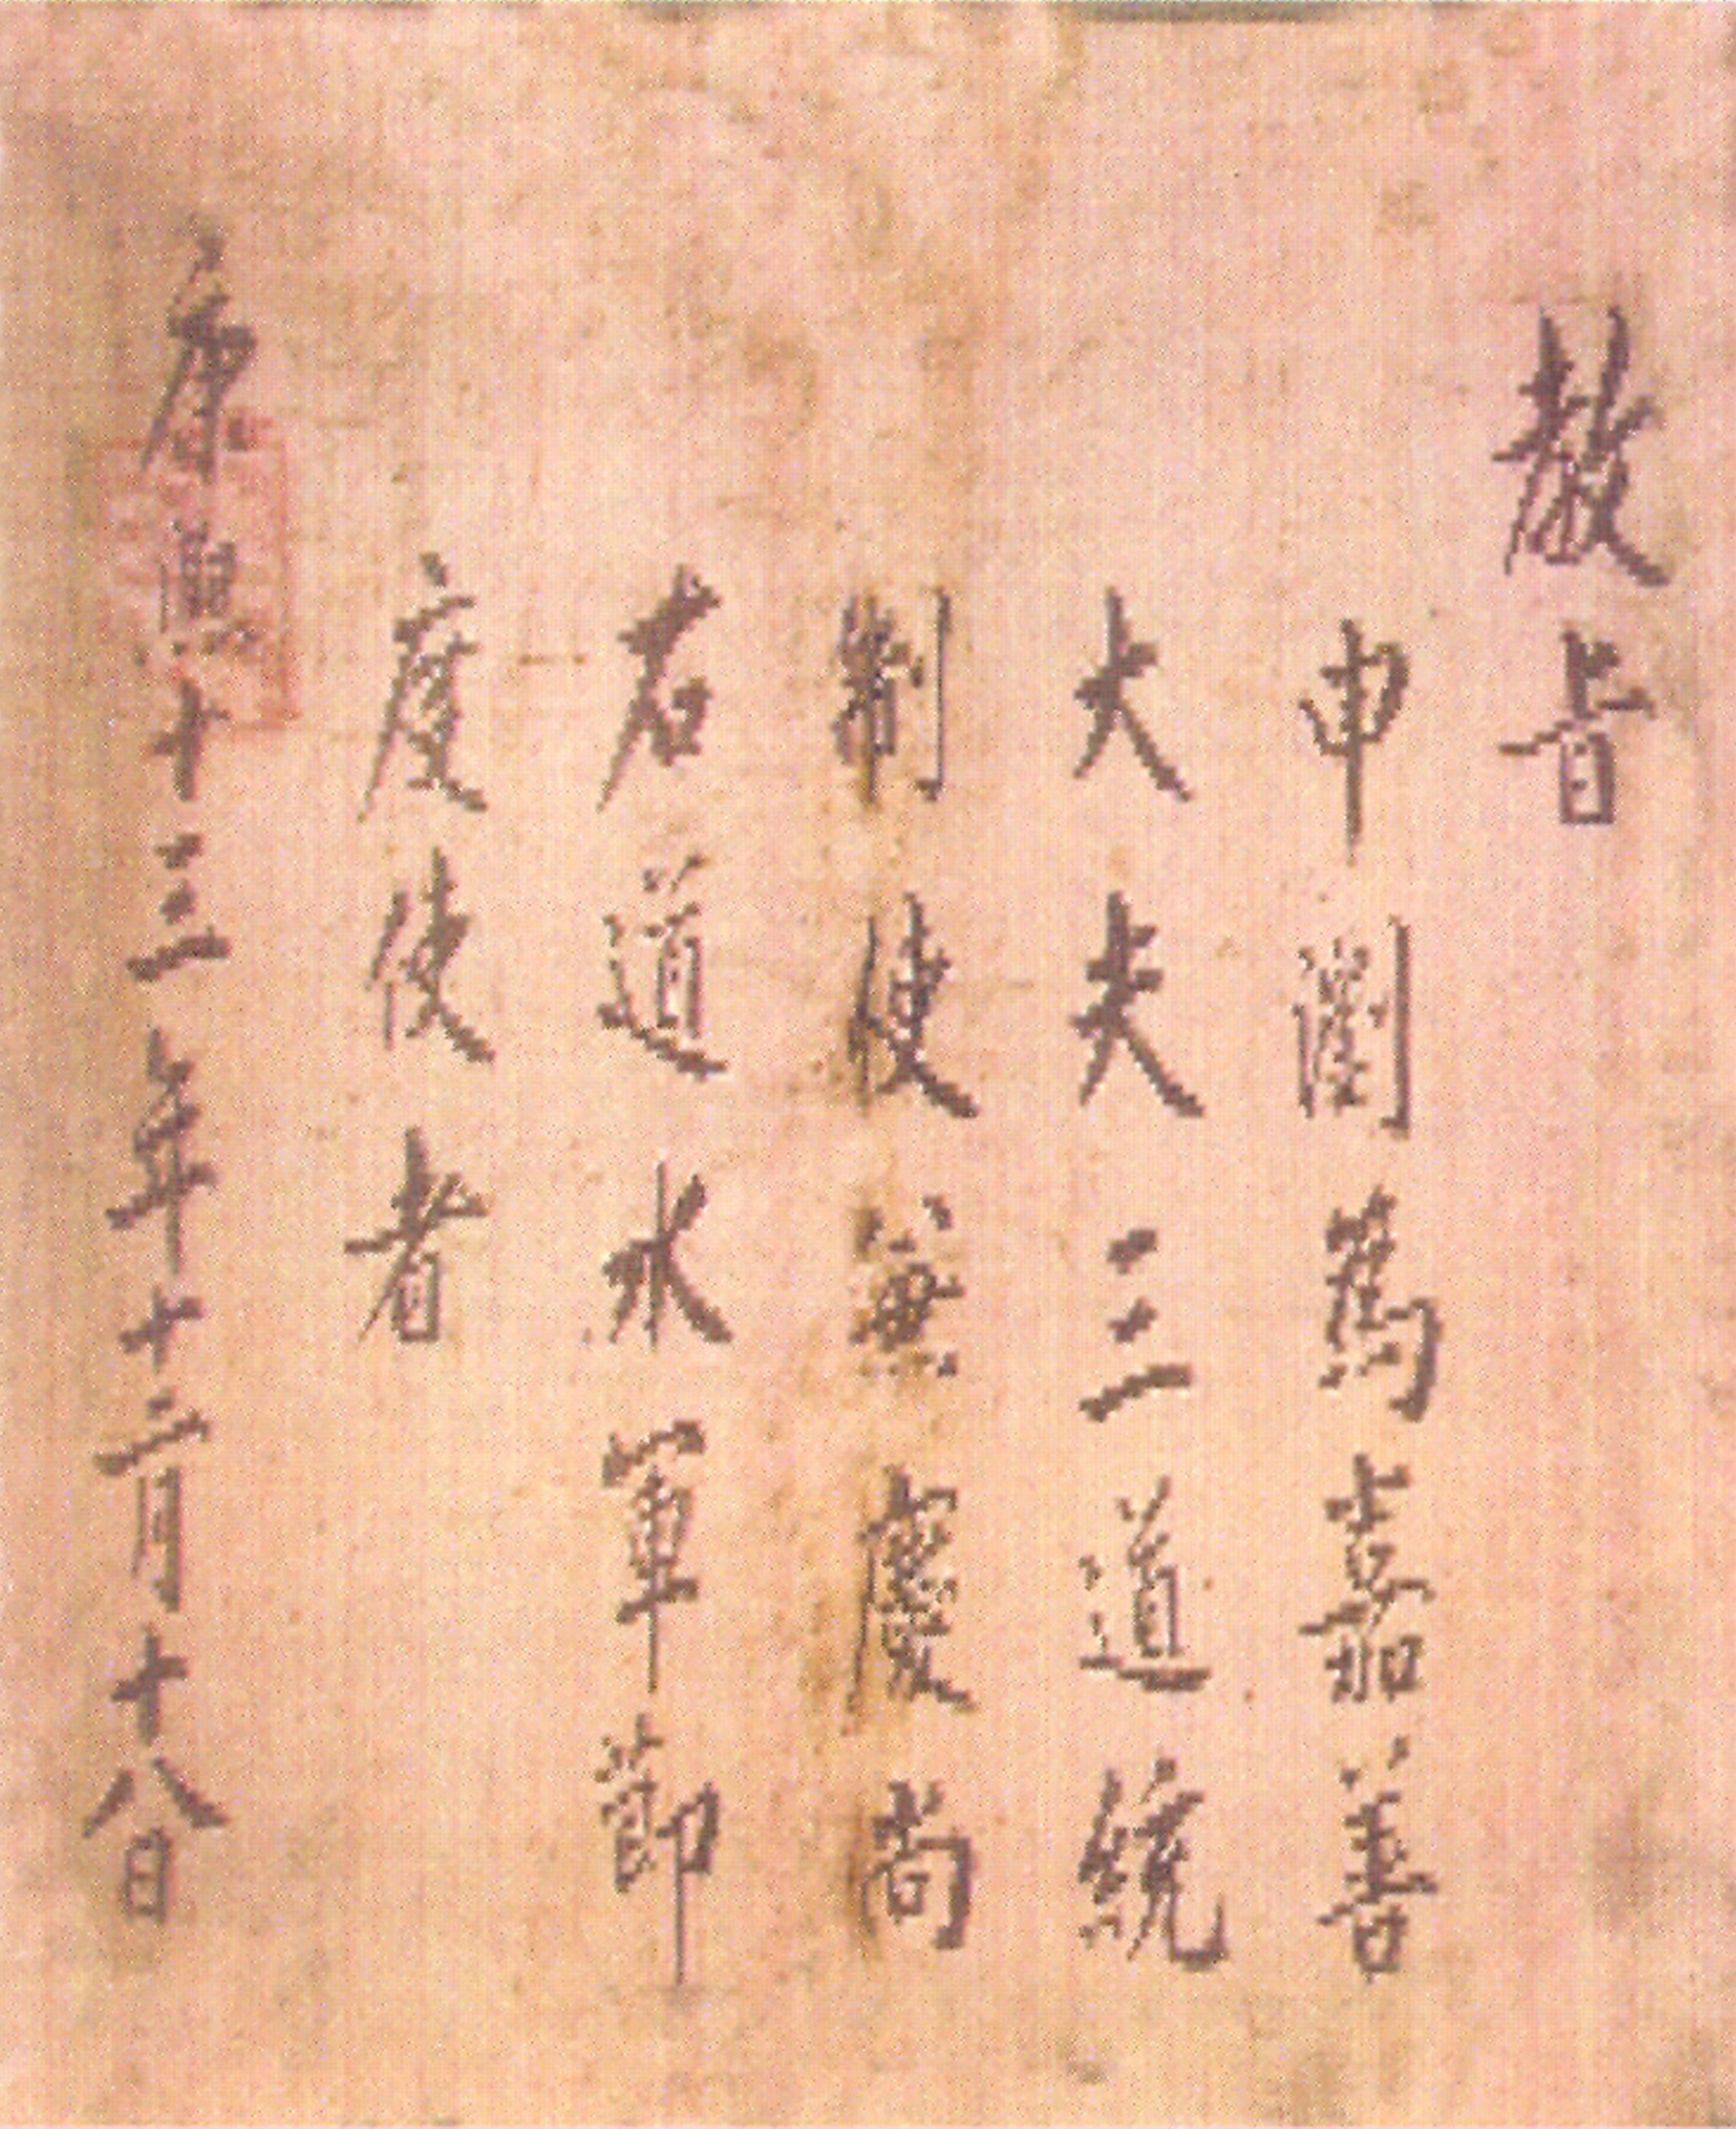 教旨
申瀏爲嘉善
大夫三道統
制使兼慶尚
右道水軍節
度使者
康熙十三年十二月十八日